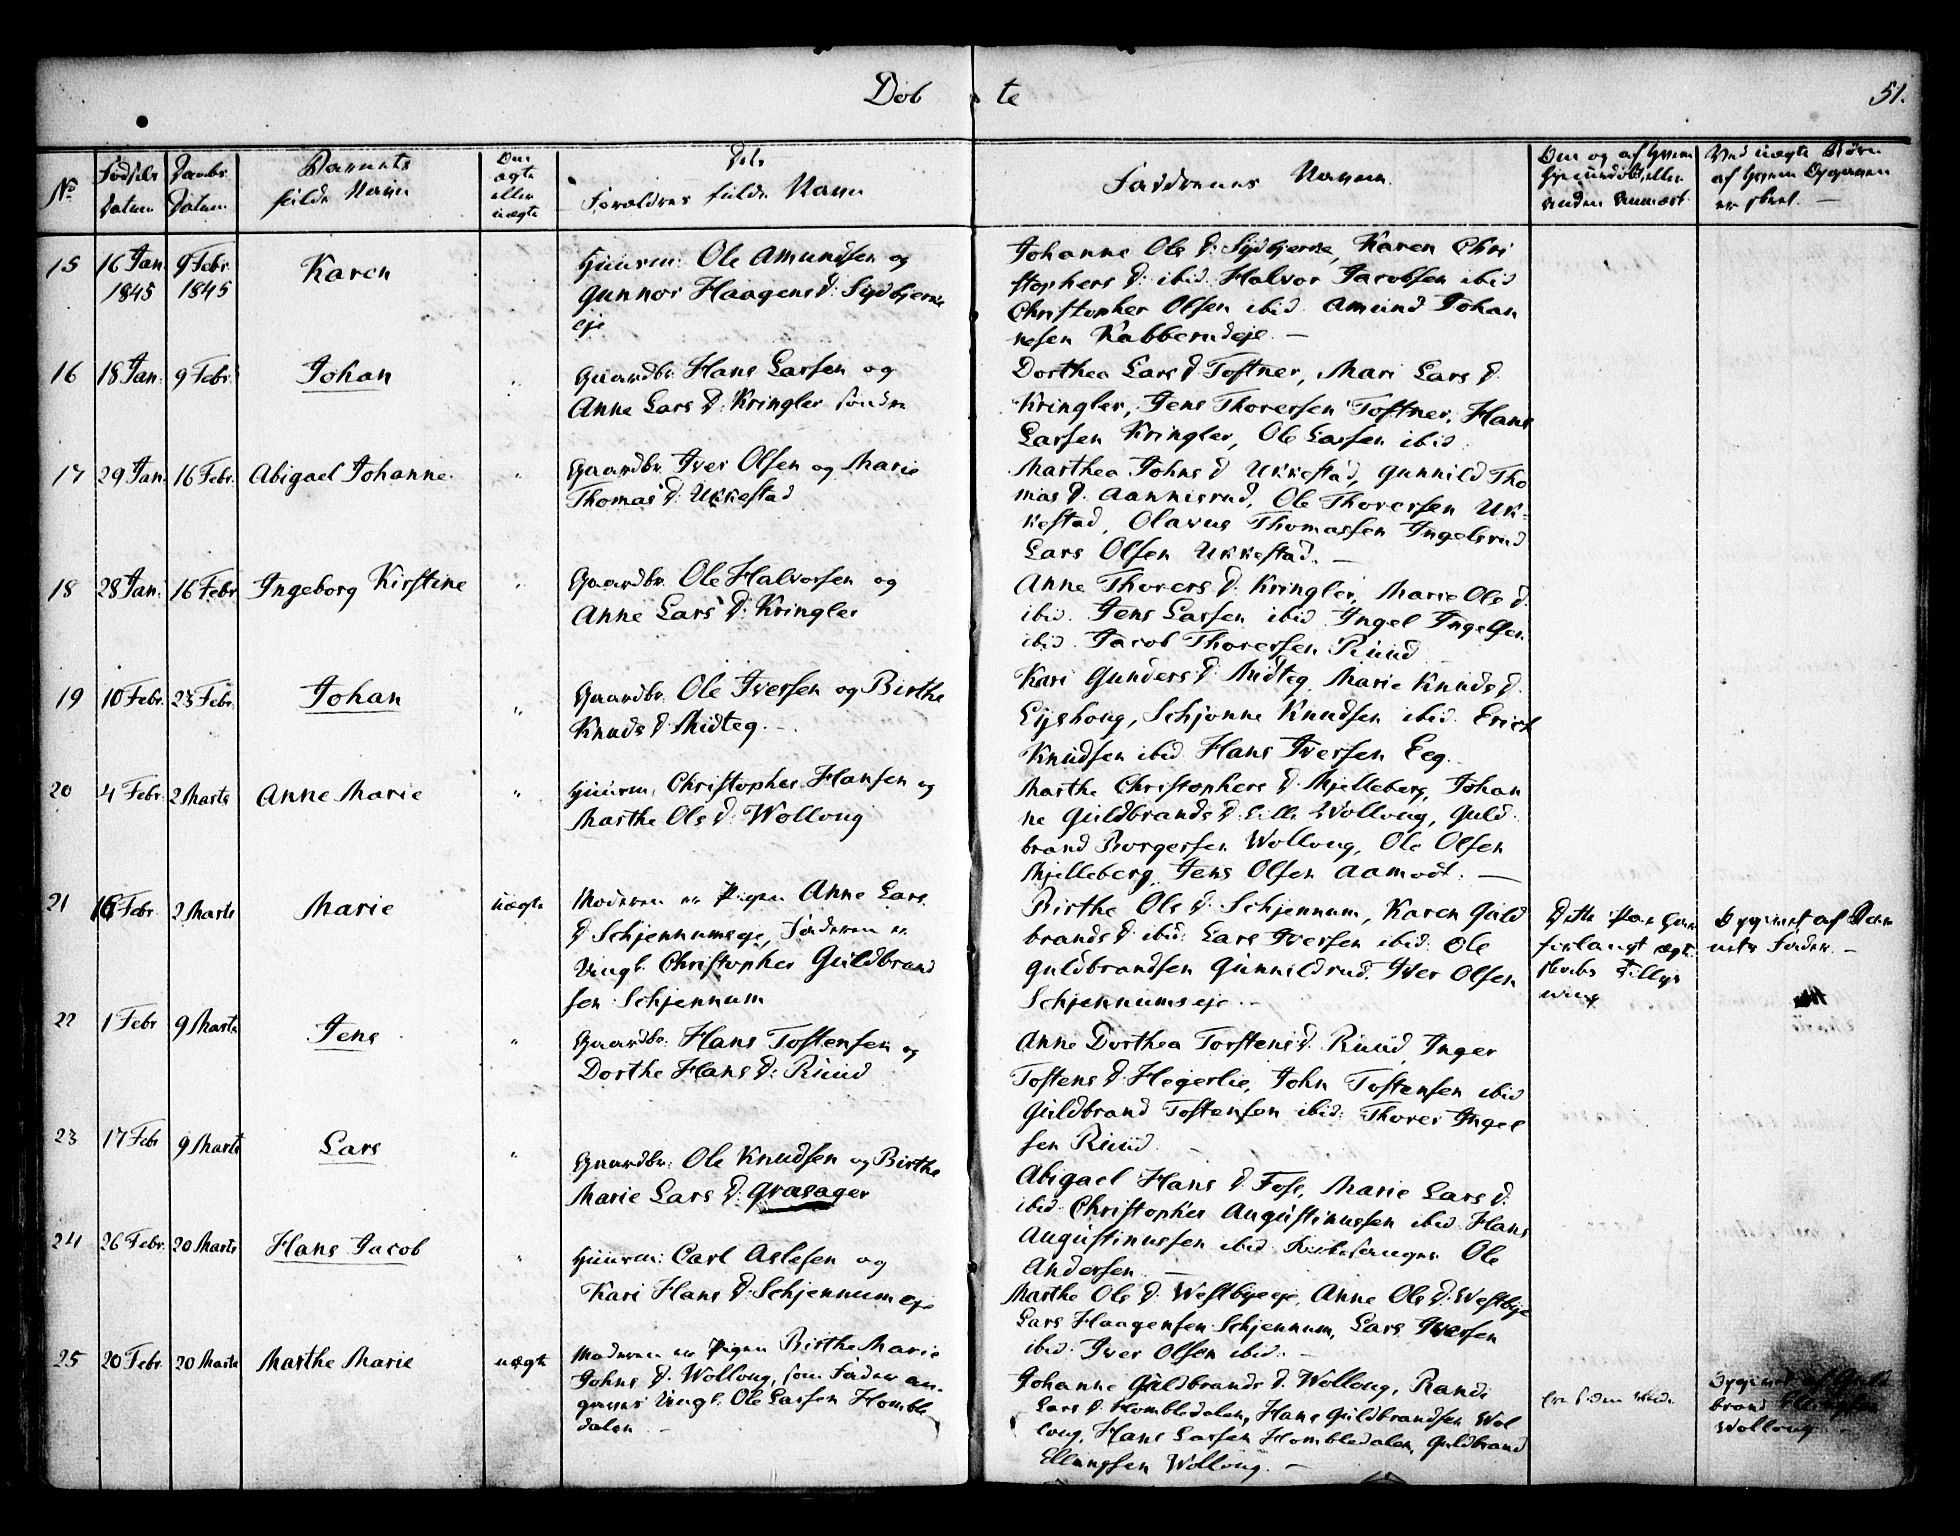 Døbte
51.
No
Fødsels Datum
Daabs Datum
Barnets fulde Navn
Om ægte eller uægte
Forældres fulde Navn
Faddrenes Navne
15 16 Jan. 1845 9 Febr. 1845 Karen
Huusm: Ole Amundsen og
Gunnor Haagens D: Sydbjerke
eje
Johanne Ols D: Sydbjerke, Karen Chri
stophers D: ibid. Halvor Jacobsen ibid
Christopher Olsen ibid. Amund Johan
nesen Kabberudeje. —
16 18 Jan. 9 Febr. Johan "
Gaardbr. Hans Larsen og
Anne Lars D: Kringler søndre
Dorthea Lars D Toftner, Mari Lars D.
Kringler, Jens Thoresen Toftner, Hans
Larsen Kringler, Ole Larsen ibid.
17 29 Jan. 16 Febr. Abigael Johanne. "
Gaardbr. Iver Olsen og Marie
Thomas D: Ukkestad
Marthea Johns D Ukkestad, Gunnild Tho
mas D. Aannisrud, Ole Thoresen Uk-
kestad, Olavus Thomassen Ingelsrud
Lars Olsen Ukkestad. —
18 28 Jan. 16 Febr Ingeborg Kirstine "
Gaardbr. Ole Halvorsen og
Anne Lars D: Kringler
Anne Thorers D: Kringler, Marie Ols D.
ibid. Jens Larsen ibid Ingel Ingelsen
ibid. Jacob Thoresen Ruud
19 10 Febr. 23 Febr. Johan "
Gaardbr. Ole Iversen og Birthe
Knuds D Midteg. —
Kari Gunders D: Midteg, Marie Knuds D.
Schjønne Knudsen ibid. Erick
Knudsen ibid Hans Iversen Eeg.
20 4 Febr. 2 Marts Anne Marie "
Huusm: Christopher Hansen og
Marthe Ols D: Wolloug
Marthe Christophers D. Mjelleberg, Johan
ne Guldbrands D. Wolloug, Guld
brand Borgersen Wolloug, Ole Olsen
Mjelleberg, Jens Olsen Aamodt. —
21 16 Febr. 2 Marts Marie uægte
Moderen er Pigen Anne Lars
D Schjennumseje, Faderen er
Ungk. Christopher Guldbrand
sen Schjennum
Birthe Ols D. Schjennum, Karen Guld
brands D. ibid: Lars Iversen ibid: Ole
Guldbrandsen Gunnildrud. Iver Olsen
Schjennumseje. —
Dette Par har
forlangt ægte
skabs Tillys
ning
Opgivet af Bar
nets Fader. —
22 1 Febr 9 Marts Jens "
Gaardbr: Hans Tostensen og
Dorthe Hans D: Ruud
Anne Dorthea Torstens D. Ruud Inger
Tostens D. Hegerlie, John Tostensen ibid
Guldbrand Tostensen ibid: Thorer Ingel
sen Ruud. —
23 17 Febr 9 Marts Lars "
Gaardbr: Ole Knudsen og Birthe
Marie Lars D: Græsager
Abigael Hans D. Foss, Marie Lars D.
ibid Christopher Augustinussen ibid Hans
Augustinussen ibid. Kirkesanger Ole
Andersen. —
24 26 Febr. 20 Marts Hans Jacob "
Huusm: Carl Aslesen og
Kari Hans D: Schjennumeje
Marthe Ols D: Westbyeeje, Anne Ols D: Westbye
Lars Haagensen Schjennum, Lars Iversen
ibid: Iver Olsen ibid: —
25 20 Febr. 20 Marts Marthe Marie uægte
Moderen er Pigen Birthe Marie
Johns D. Wolloug, som Fader an-
gives Ungk. Ole Larsen Homble
dalen —
Johanne Guldbrands D. Wolloug, Rande
Lars D. Hombledalen, Hans Guldbrandsen Wol
loug, Hans Larsen Hombledalen, Guldbrand
Ellingsen Wolloug. —
Opgivet af Guld
brand Ellingsen
Wolloug —